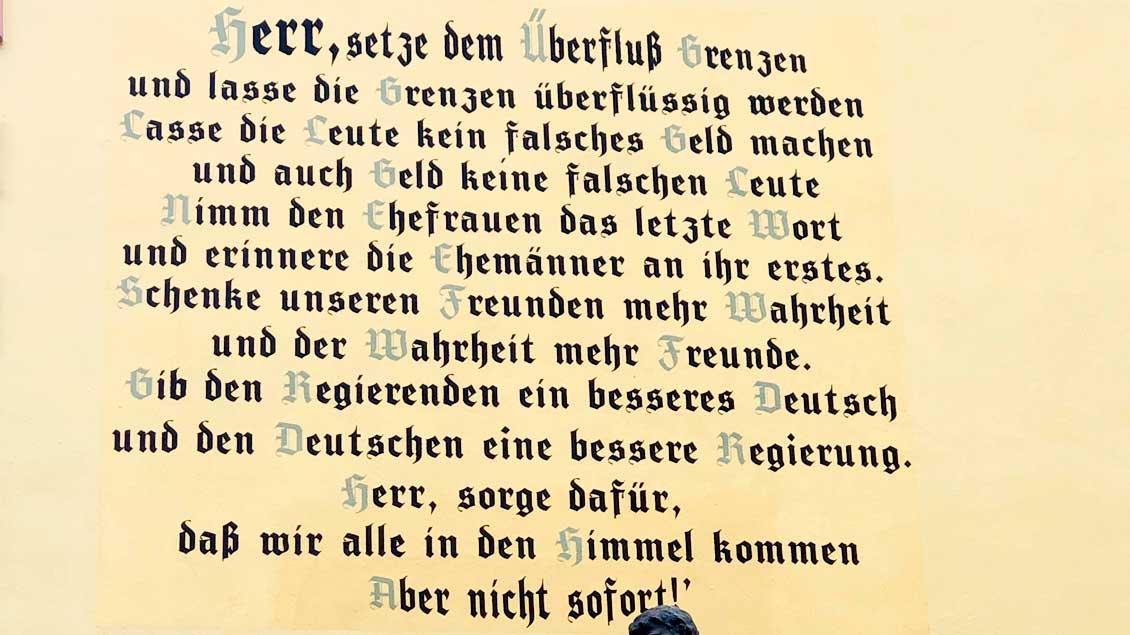 Herr, setze dem Überfluß Grenzen
und lasse die Grenzen überflüssig werden
Lasse die Leute kein falsches Geld machen
und auch Geld keine falschen Leute
Nimm den Ehefrauen das letzte Wort
und erinnere die Ehemänner an ihr erstes.
Schenke unseren Freunden mehr Wahrheit
und der Wahrheit mehr Freunde.
Gib den Regierenden ein besseres Deutsch
und den Deutschen eine bessere Regierung.
Herr, sorge dafür,
daß wir alle in den Himmel kommen
Aber nicht sofort!’